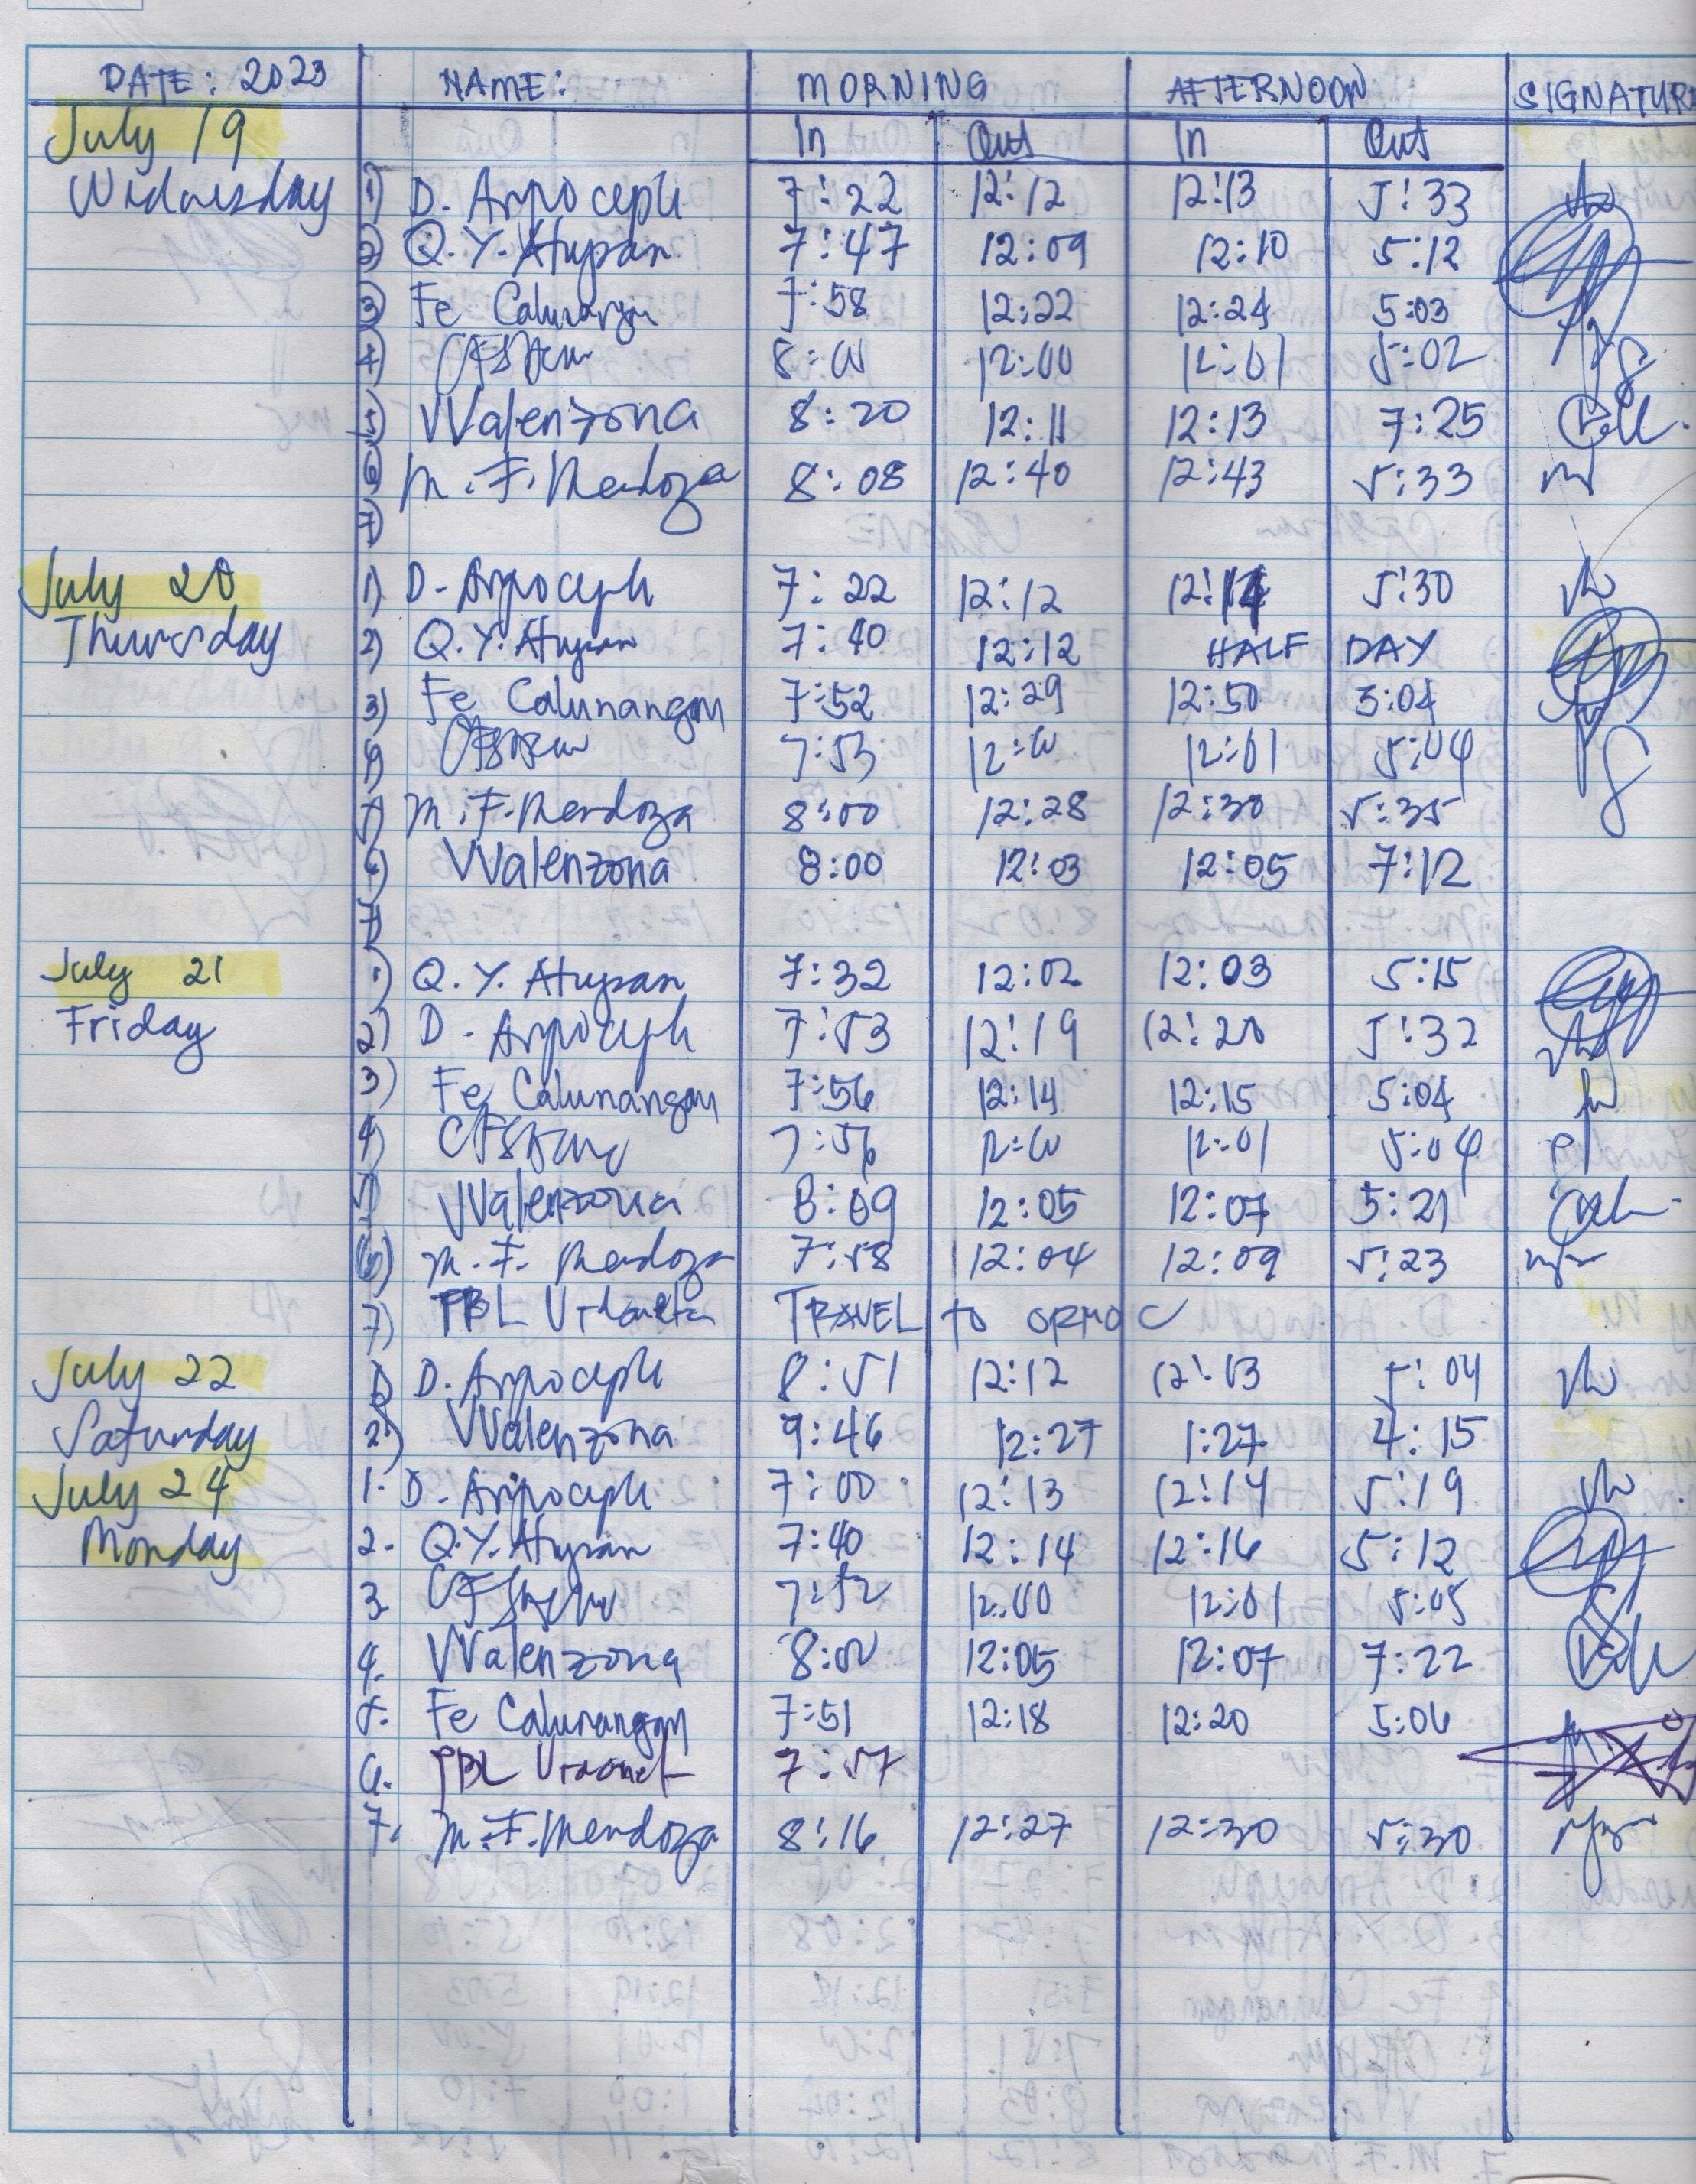 DATE: 2023 NAME: MORNING AFTERNOON SIGNATURE
July 19 In Out In Out
Widnesday 1) D. 7:22 12:12 12:13 5:33
2) Q.Y. Atupan 7:47 12:09 12:10 5:12
3) Fe Calunangan 7:58 12:22 12:24 5:03
4) 8:00 12:00 12:01 5:02
5) VValenzona 8:20 12:11 12:13 7:25
6) M.F. Mendoza 8:08 12:40 12:43 5:33
7)
July 20 1) D. 7:22 12:12 12:14 5:30
Thursday 2) Q.Y. Atupan 7:40 12:12 HALF DAY
3) Fe Calunangan 7:52 12:29 12:50 5:04
4) 7:53 12:00 12:01 5:04
5) M.F. Mendoza 8:00 12:28 12:30 5:35
6) VValenzona 8:00 12:03 12:05 7:12
7)
July 21 1) Q.Y. Atupan 7:32 12:02 12:03 5:15
Friday 2) D. 7:53 12:19 12:20 5:32
3) Fe Calunangan 7:56 12:14 12:15 5:04
4) 7:56 12:00 12:01 5:04
5) VValenzona 8:09 12:05 12:07 5:21
6) M.F. Mendoza 7:58 12:04 12:09 5:23
7) PBL TRAVEL to ORMOC
July 22 1) D. 8:51 12:12 12:13 5:04
Saturday 2) VValenzona 9:46 12:27 1:27 4:15
July 24 1. D. 7:00 12:13 12:14 5:19
Monday 2. Q.Y. Atupan 7:40 12:14 12:16 5:12
3. 7:52 12:00 12:01 5:05
4. VValenzona 8:00 12:05 12:07 7:22
5. Fe Calunangan 7:51 12:18 12:20 5:06
6. PBL 7:57
7. M.F. Mendoza 8:16 12:27 12:30 5:30